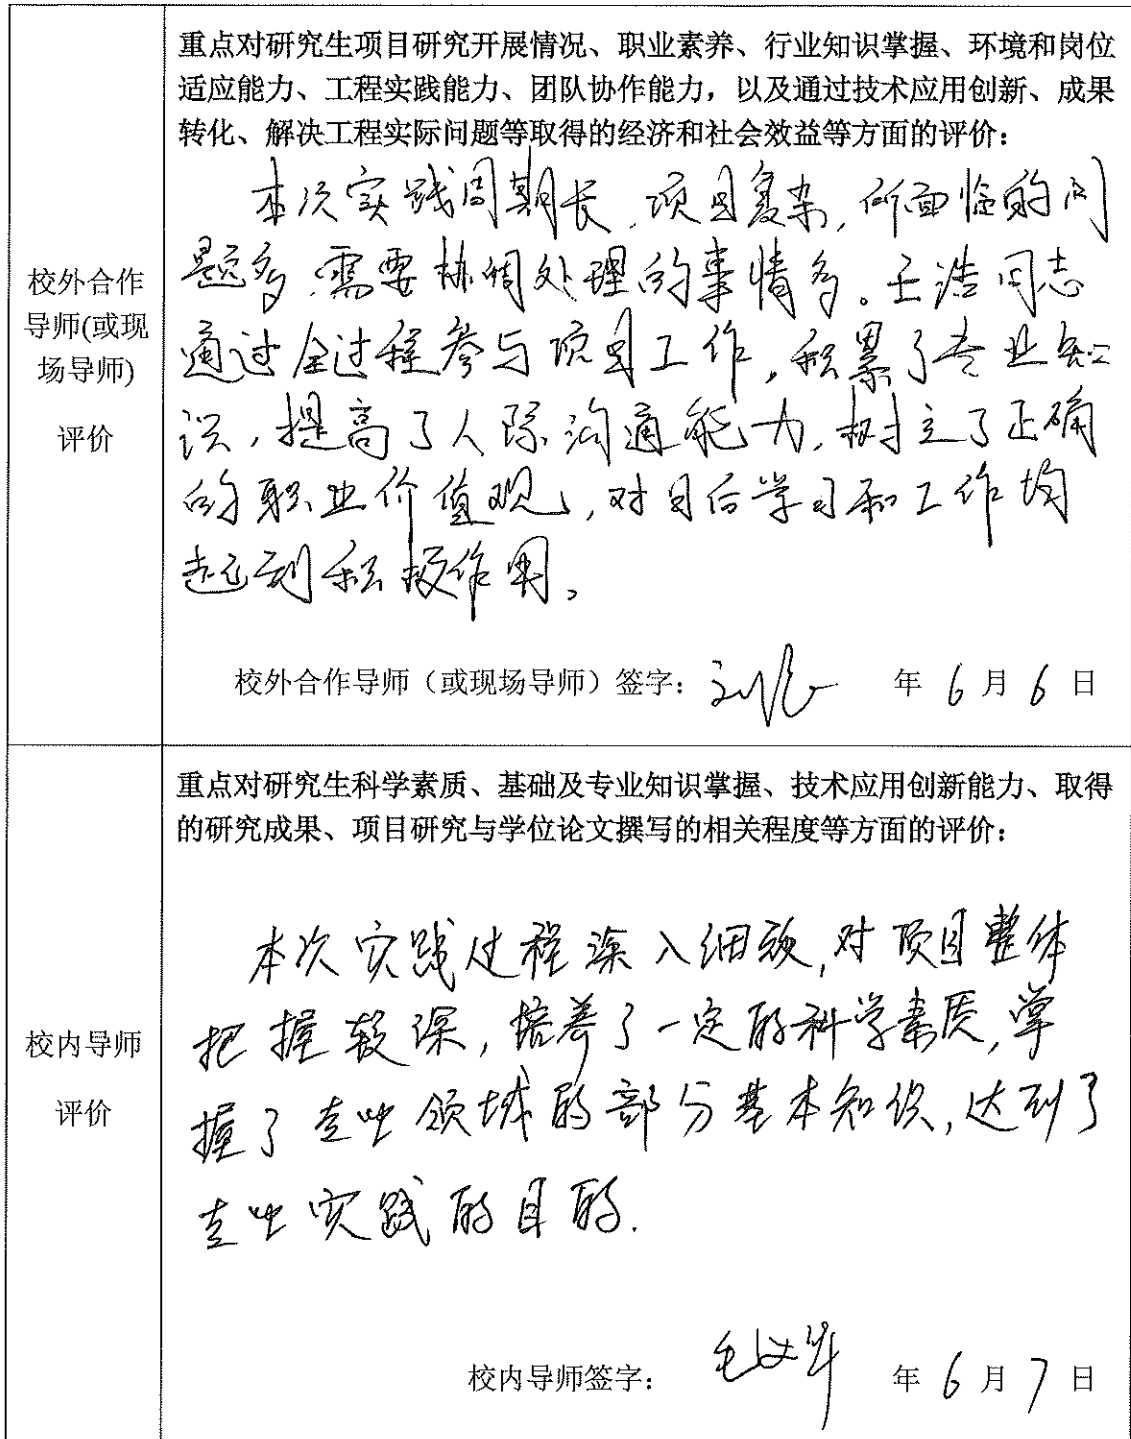 重点对研究生项目研究开展情况、职业素养、行业知识掌握、环境和岗位
适应能力、工程实践能力、团队协作能力，以及通过技术应用创新、成果
转化、解决工程实际问题等取得的经济和社会效益等方面的评价：
本次实践周期长，项目复杂，所面临的问
题多，需要协调处理的事情多。王浩同志
通过全过程参与项目工作，积累了专业知
识，提高了人际沟通能力，树立了正确
的职业价值观，对日后学习和工作均
起到积极作用。
校外合作
导师(或现
场导师)
评价
校外合作导师（或现场导师）签字： 年 6 月 6 日
重点对研究生科学素质、基础及专业知识掌握、技术应用创新能力、取得
的研究成果、项目研究与学位论文撰写的相关程度等方面的评价：
本次实践过程深入细致,对项目整体
把握较深,培养了一定的科学素质,掌
握了专业领域的部分基本知识,达到了
专业实践的目的.
校内导师
评价
校内导师签字： 年 6 月 7 日